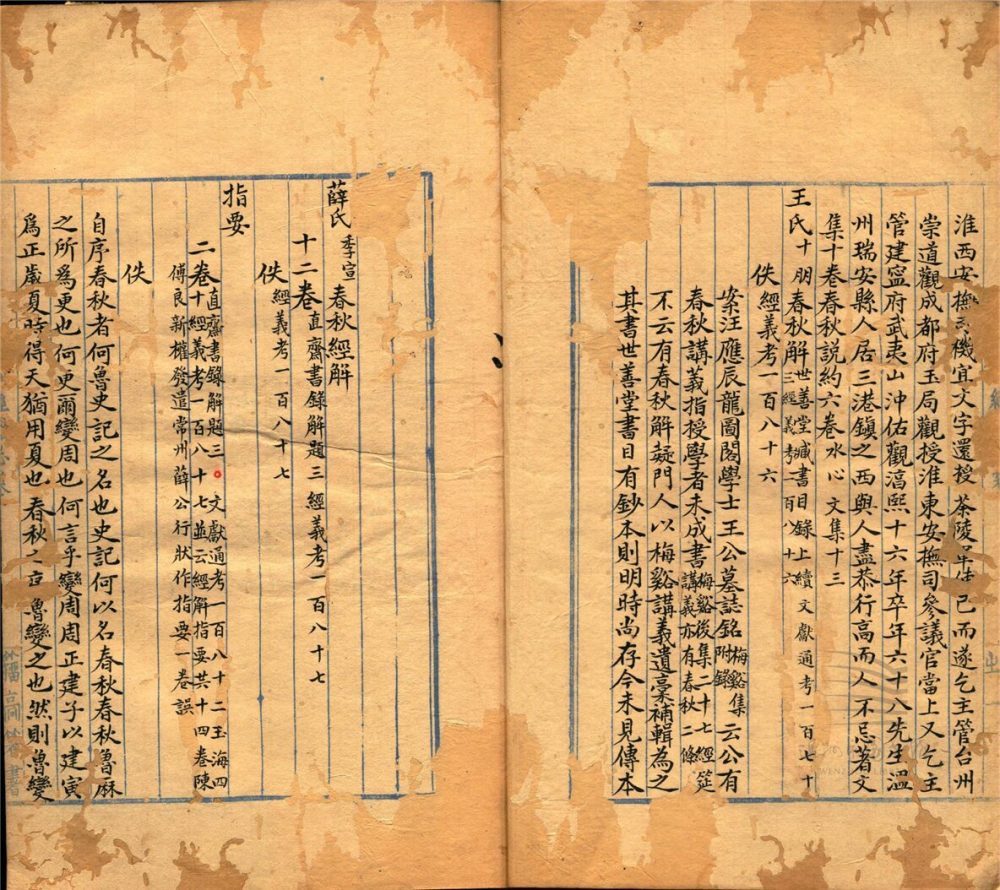 淮西安撫司機宜文字還授茶陵軍使已而遂乞主管台州
崇道觀成都府玉局觀授淮東安撫司參議官當上又乞主
管建寧府武夷山沖佑觀淳熙十六年卒年六十八先生溫
州瑞安縣人居三港鎮之西與人盡恭行高而人不忌著文
集十卷春秋說約六卷水心文集十三
王氏十朋春秋解世善堂藏書目錄上續文獻通考一百七十三經義考一百八十六
佚經義考一百八十六
案汪應辰龍圖閣學士王公墓誌銘梅谿集附錄云公有
春秋講義指授學者未成書梅谿後集二十七經筵講義亦有春秋二條
不云有春秋解疑門人以梅谿講義遺稾補輯為之
其書世善堂書目有鈔本則明時尚存今未見傳本
薛氏季宣春秋經解
十二卷直齋書錄解題三經義考一百八十七
佚經義考一百八十七
指要
二卷直齋書錄解題三。文獻通考一百八十二玉海四十經義考一百八十七並云經解指要共十四卷陳
傅良新權發遣常州薛公行狀作指要一卷誤
佚
自序春秋者何魯史記之名也史記何以名春秋春秋魯厤
之所爲更也何更爾變周也何言乎變周周正建子以建寅
爲正歲夏時得天猶用夏也春秋之 魯變之也然則魯變